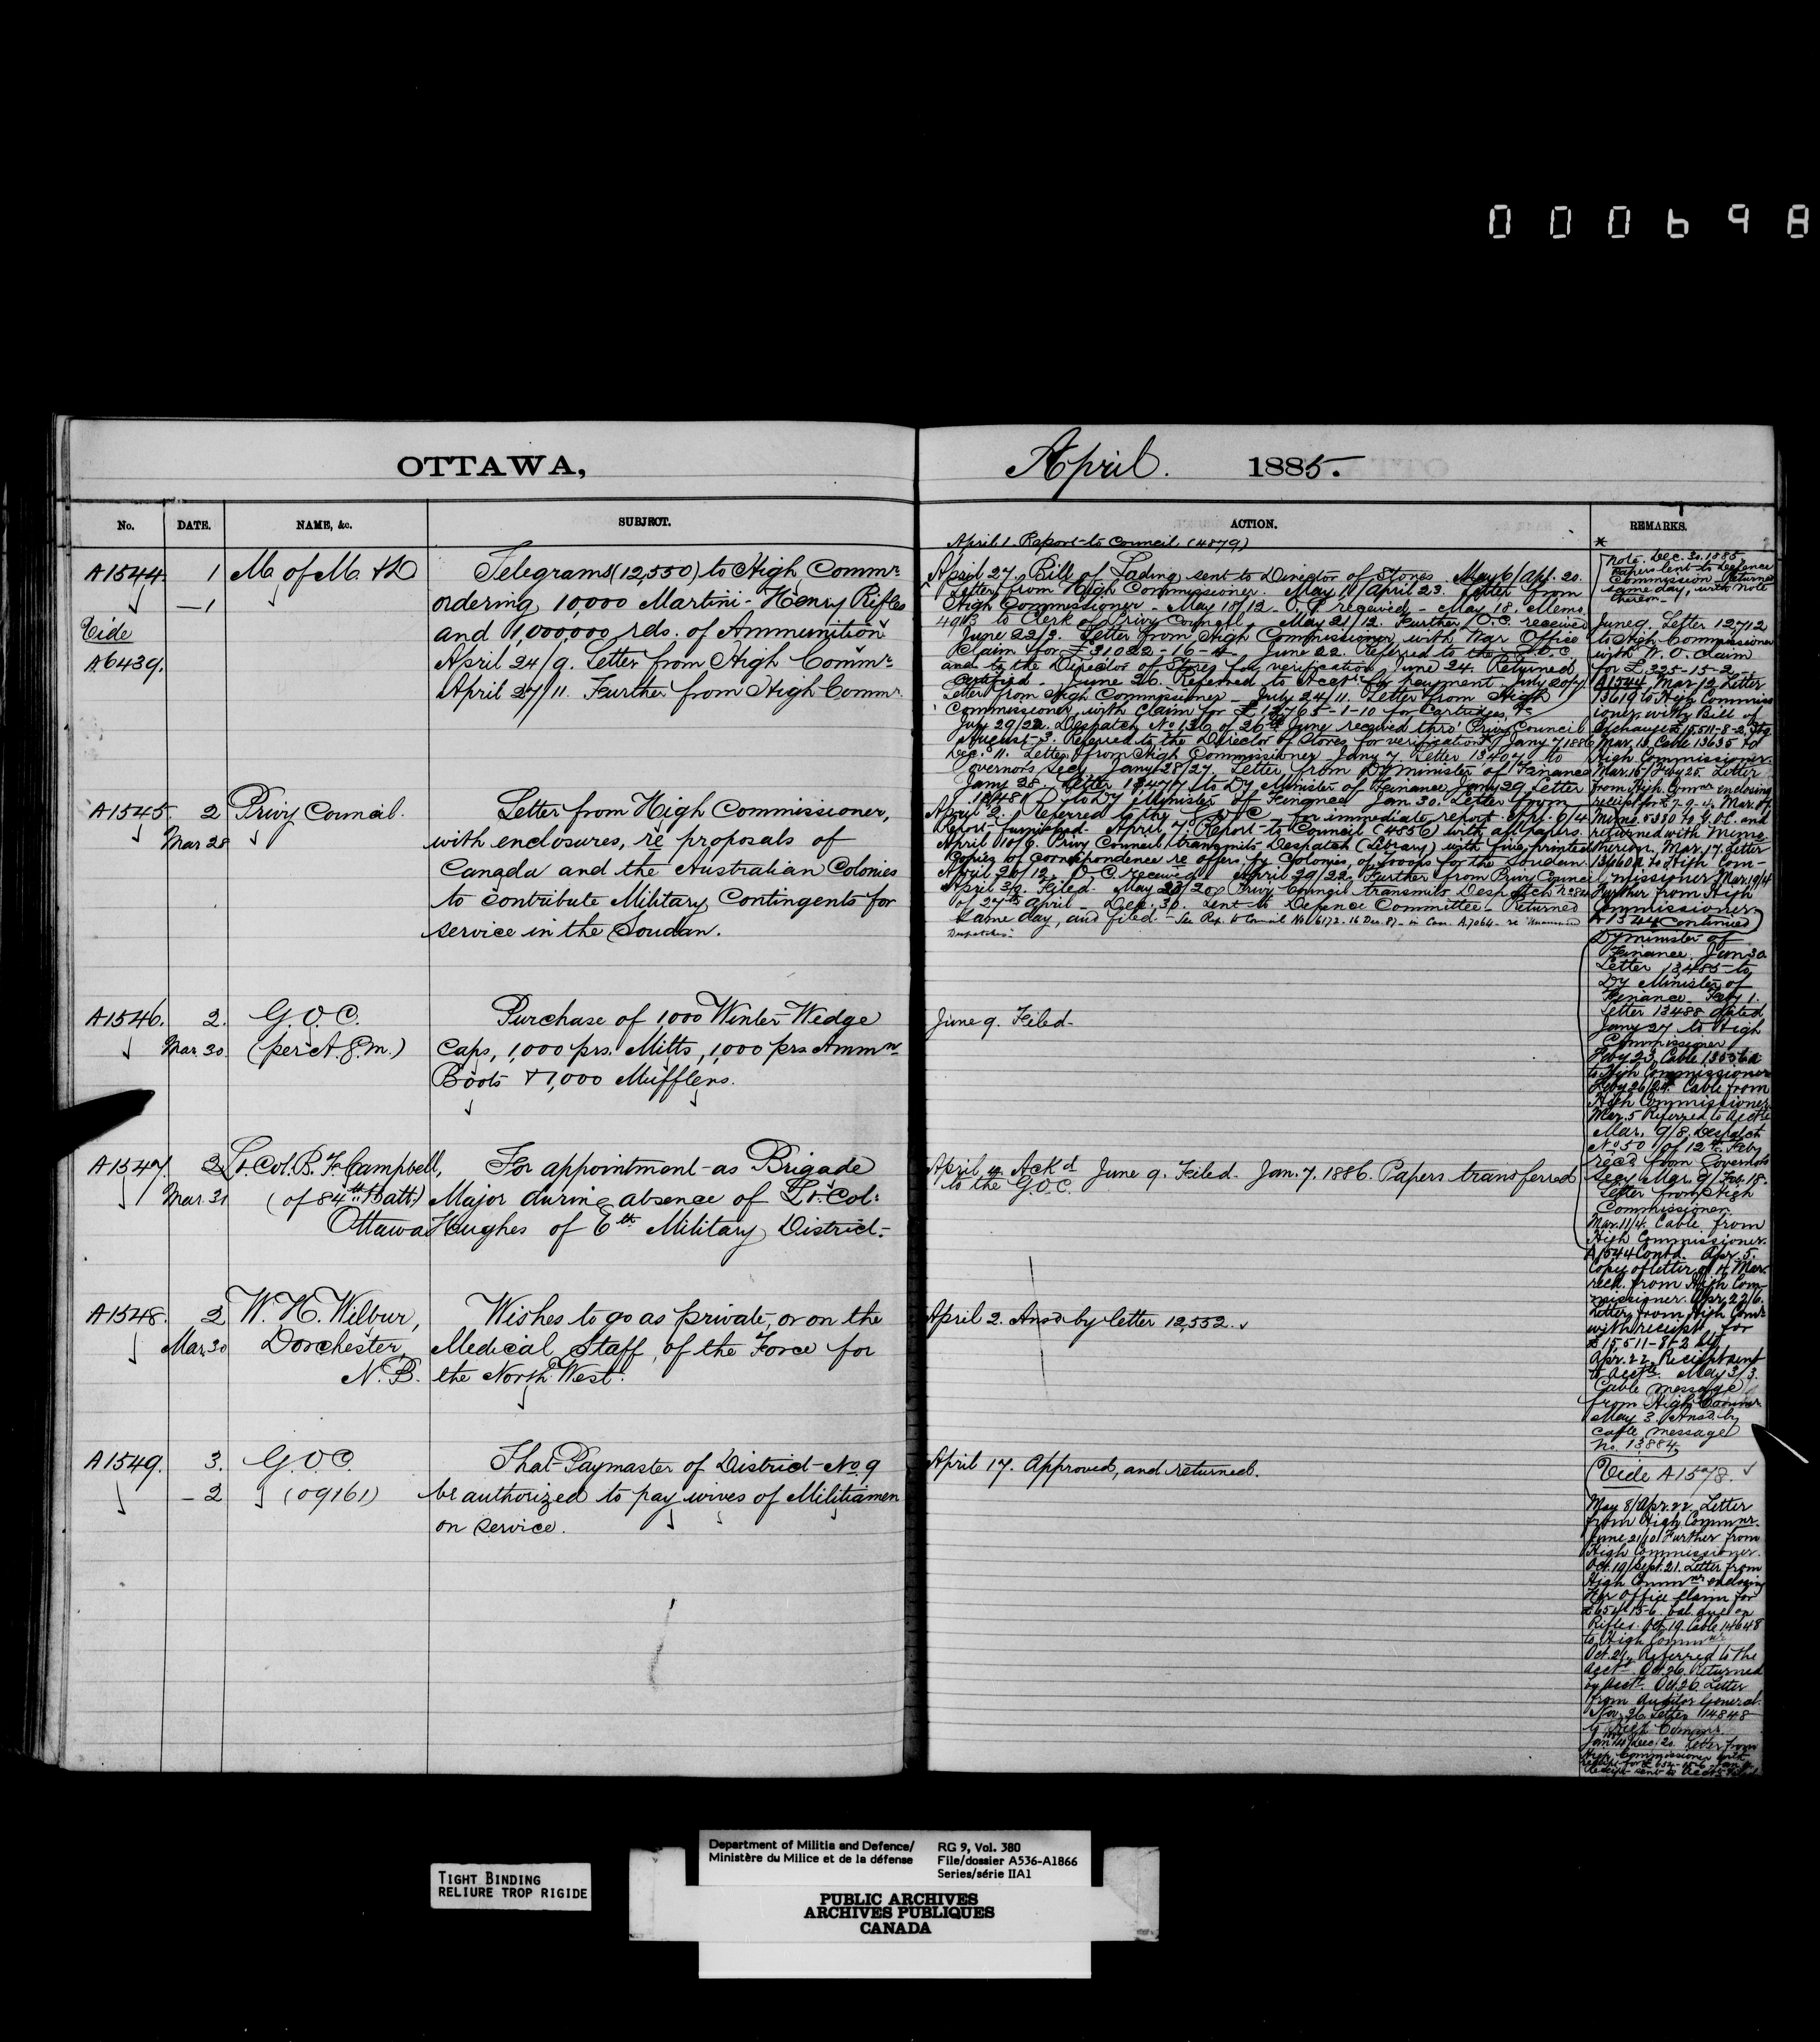 000698
OTTAWA,
No. DATE. NAME, &c. SUBJECT.
A1544 1 M. of M. & D Telegrams (12,550) to High Commr
—1 ordering 10,000 Martini-Henry Rifles
Vide and 1,000,000 rds. of Ammunition
A6439. April 24/9. Letter from High Commr
April 27/11. Further from High Commr.
A1545. 2 Privy Council. Letter from High Commissioner,
Mar 28 with enclosures, re proposals of
Canada and the Australian Colonies
to contribute Military Contingents for
service in the Soudan.
A1546. 2. G.O.C. Purchase of 1000 Winter Wedge
Mar. 30 (per A.G.M.) Caps, 1,000 prs. Mitts, 1,000 prs Ammn
Boots & 1,000 Mufflers.
A1547. 2 Lt. Col. B. F. Campbell, For appointment as Brigade
Mar. 31 (of 84th Batt.) Major during absence of Lt. Col:
Ottawa Hughes of 6th Military District.
A1548. 2 W. H. Wilbur, Wishes to go as private, or on the
Mar. 30 Dorchester, Medical Staff, of the Force for
N.B. the North West.
A1549. 3. G.O.C. That Paymaster of District No. 9
—2 (09161) be authorized to pay wives of Militiamen
on service.
April. 1885.
ACTION. REMARKS.
April 1. Report to Council (4879)
April 27. Bill of Lading sent to Director of Stores. May 6/Apl. 20.
Letter from High Commissioner. May 11/April 23. Letter from
High Commissioner - May 18/12. O.C. received - May 18. Memo.
4913 to Clerk of Privy Council. May 21/12. Further O.C. received
June 22/2. Letter from High Commissioner, with War Office
Claim for £31022-16-4. June 22. Referred to the G.O.C.
and to the Director of Stores for verification June 24. Returned
certified. June 26. Referred to Acctt for payment. July 20/7.
Letter from High Commissioner. July 24/11. Letter from High
Commissioner, with claim for £ -1-10 for Cartridges, &c
July 29/22. Despatch No 136 of 26th June received thro' Privy Council
August 3. Referred to the Director of Stores for verification. Jany 7 1886
Dec. 11. Letter from High Commissioner Jany 7. Letter 13407 to
Governor's Secy. Jany 28/27. Letter from Dy Minister of Finance
Jany 28. Letter 13477 to Dy Minister of Finance Jany 29 Letter
13481 to Dy Minister of Finance Jan. 30. Letter from
April 2. Referred to the G.O.C. for immediate report. Apr. 6/4
Report furnished. April 7. Report to Council (4856) with all papers.
April 10/6. Privy Council transmits Despatch (Library) with five printed
Copies of correspondence re offers by Colonies, of troops for the Soudan.
April 20/12. O.C. received. April 29/22. Further from Privy Council
April 30. Filed. May 28/20. Privy Council transmits Despatch No 84
of 27th April - Dec. 30. Sent to Defence Committee - Returned
same day, and filed. - See Rep. to Council No 6172. 16 Dec. 87. in Con. A7064. re
Despatches.
June 9. Filed.
April 4. Ackd June 9. Filed. Jan. 7. 1886. Papers transferred
to the G.O.C.
April 2. Ansd by letter 12,552.
April 17. Approved, and returned.
Note. Dec. 30. 1885
Papers lent to Defence
Commission - Returned
same day, with note
thereon.
June 9. Letter 12712
to High Commissioner
with W. O. Claim
for £ 225-15-2.
A1544, Mar 12 Letter
13619 to High Commiss
ioner, with Bill of
Exchange £15,511-8-2 Stg.
Mar. 13 Cable 13635 to
High Commissioner.
Mar. 15/Feby 25. Letter
from High Commr enclosing
receipt for £7-9-4. Mar. 17,
Memo. 05380 to G.O.C. and
returned with Memo.
thereon, Mar. 17. Letter
13660 to High Com-
missioner Mar. 19/4
Further from High
Commissioner.
(A1544 Continued)
Dy Minister of
Finance. Jan 30
Letter 13485 to
Dy Minister of
Finance Feby 1.
Letter 13488 dated
Jany 27 to High
Commissioner
Feby 23. Cable
to High Commissioner
Feby 26/24. Cable from
High Commissioner
Mar. 5 Referred to Acctt
Mar. 9/8, Despatch
No 50 of 12th Feb
recd from Governor's
Secy Mar. 9/Feb. 18.
Letter from High
Commissioner.
Mar. 11/4. Cable from
High Commissioner.
A1544 Contd. Apr. 5.
Copy of letter of 4 Mar.
recd. from High Com-
missioner. Apr. 22/6.
Letter from High Commr
with receipt for
£15,511-8-2 Stg
Apr. 22. Receipt sent
to Acctt. May 3/3.
Cable message
from High Commr
May 3. Ansd by
cable message
No. 13884.
(Vide A1578.
May 8/Apr. 22. Letter
from High Commr.
June 21/10. Further from
High Commissioner.
Oct. 19/Sept. 21. Letter from
High Commr enclosing
War Office Claim for
bal. due on
Rifles. Oct. 19. Cable 14648
to High Commr
Oct. 21. Referred to the
Acctt. Oct. 26. Returned
by Acctt. Oct. 26. Letter
from Auditor General.
Nov. 26 Letter 14848
to High Commr.
Jan 14/Dec 20. Letter from
High Commissioner with
receipt for
Receipt sent to Acctt
TIGHT BINDING
RELIURE TROP RIGIDE
Department of Militia and Defence/
Ministère du Milice et de la défense
RG 9, Vol. 380
File/dossier A536-A1866
Series/série IIA1
PUBLIC ARCHIVES
ARCHIVES PUBLIQUES
CANADA